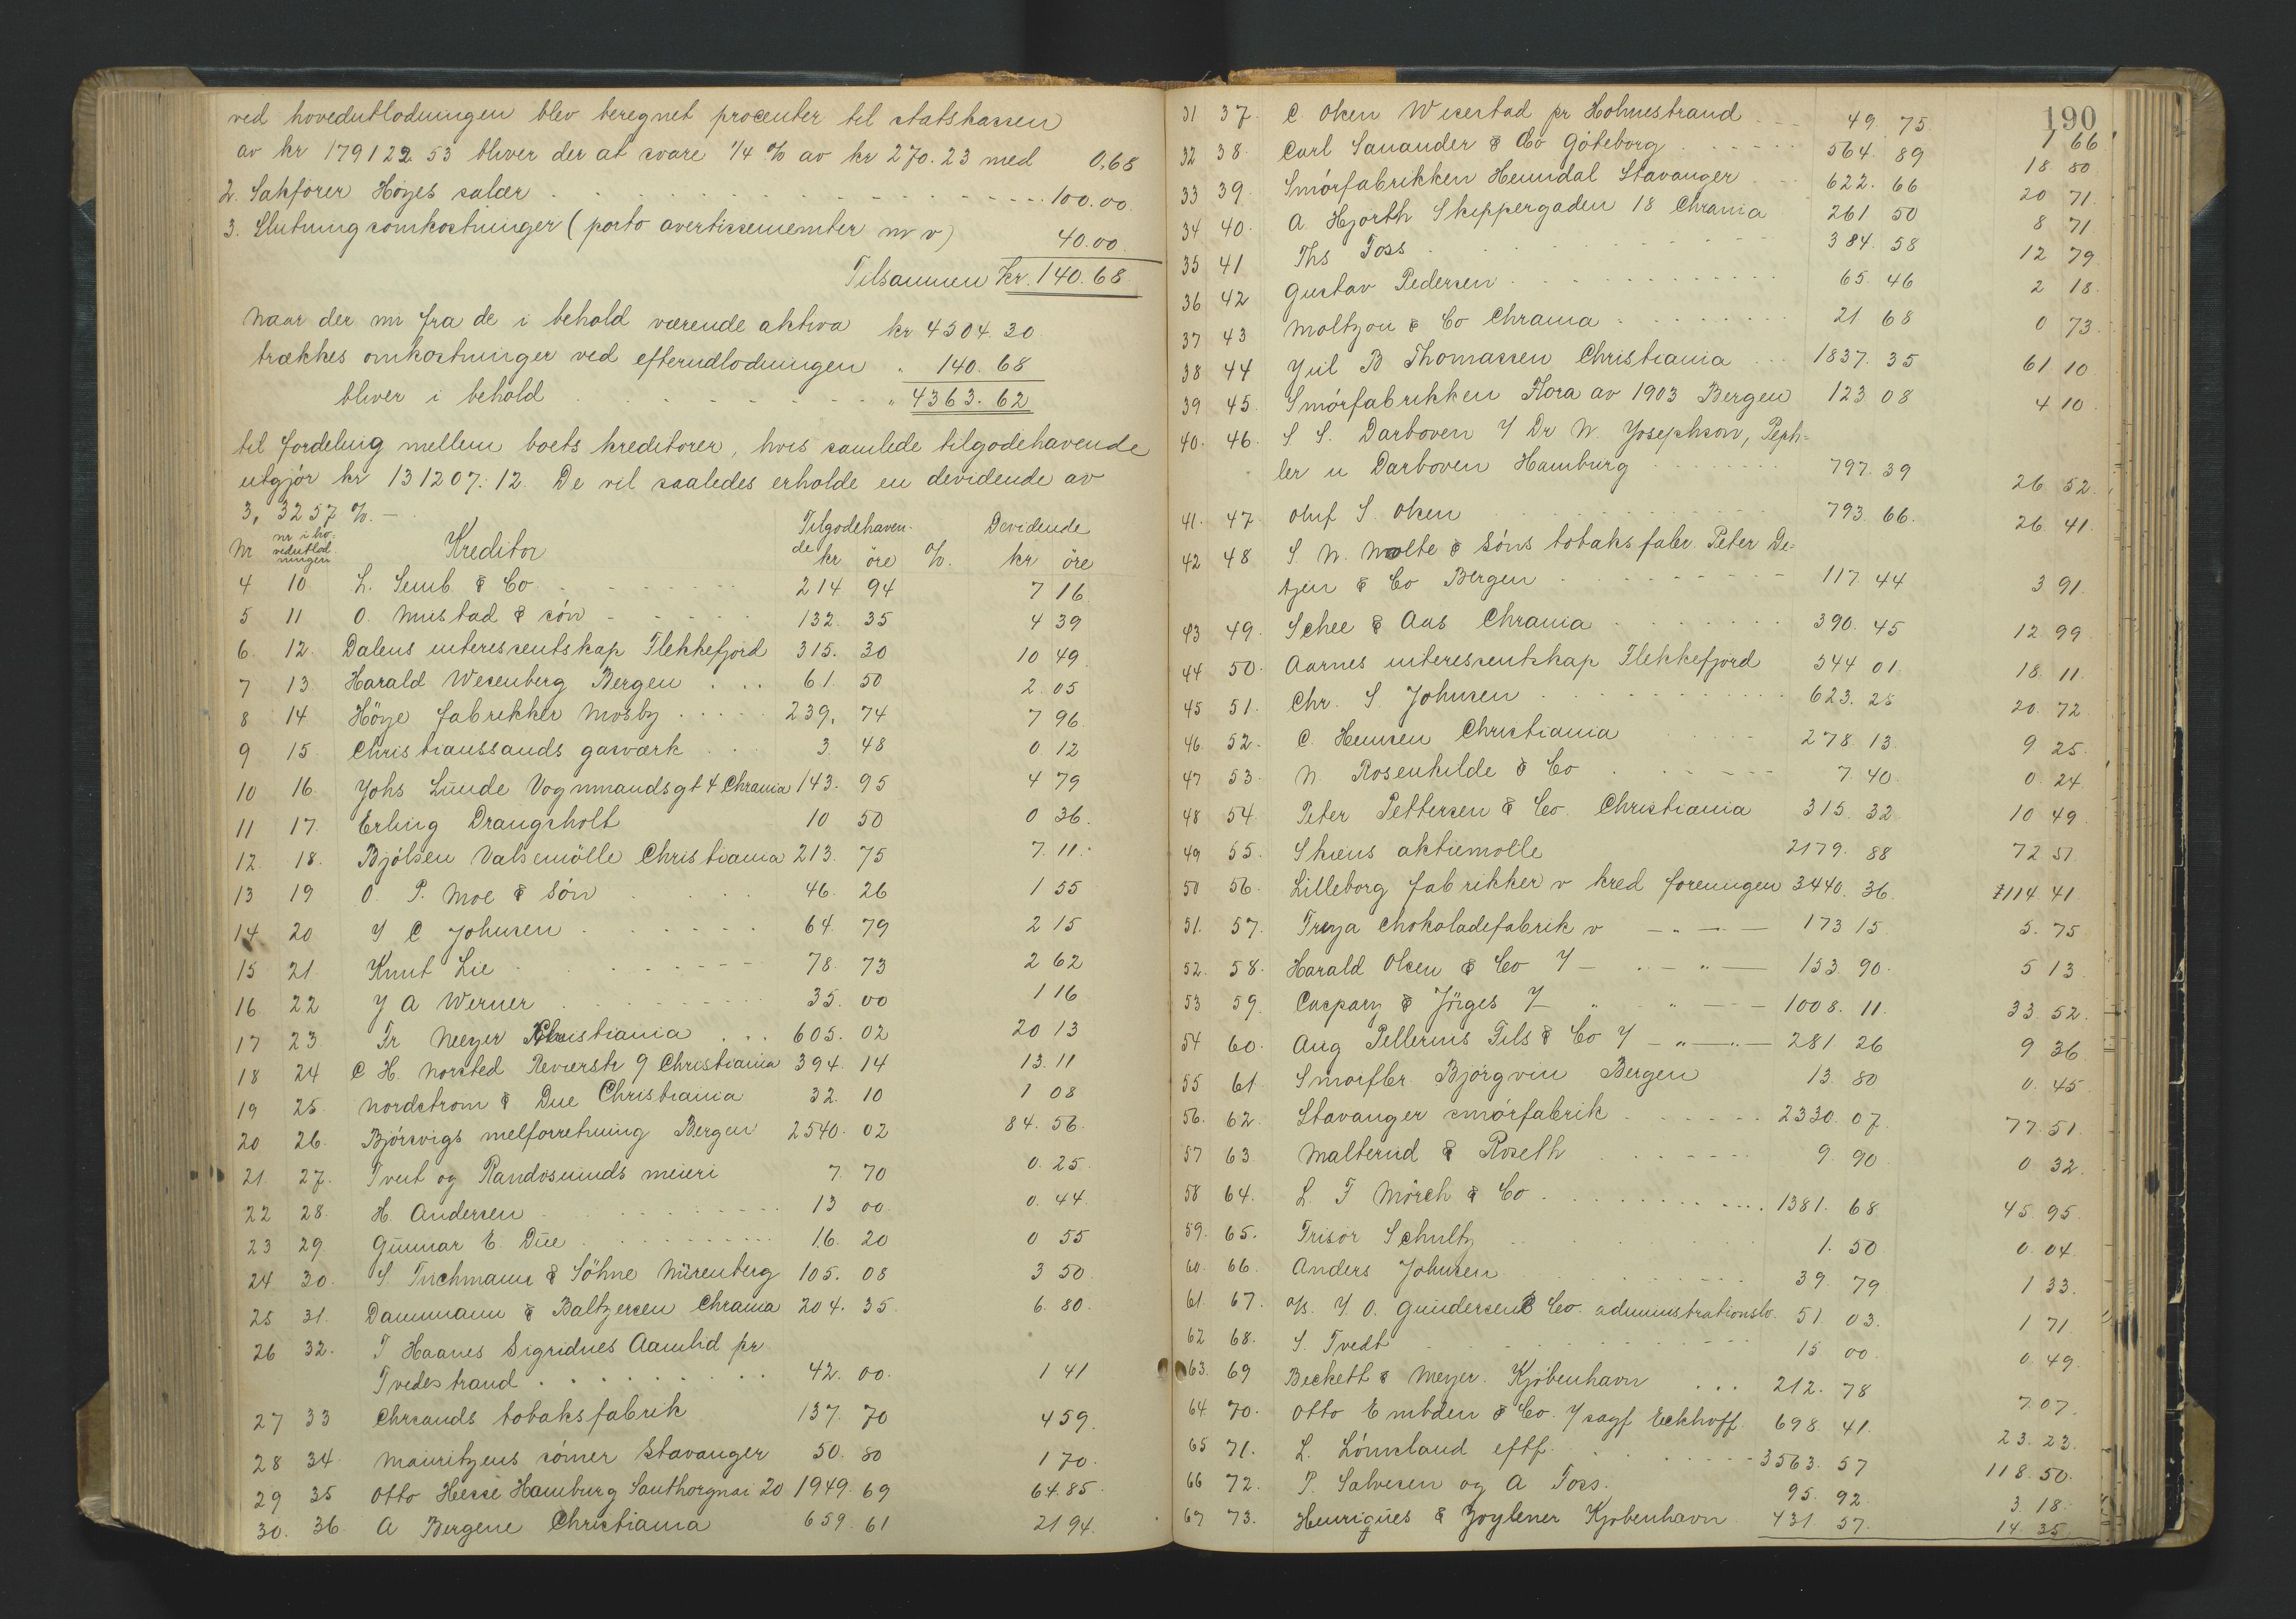 ved hovedutlodningen blev beregnet procenter til statskassen
av kr 179122.53 bliver der at svare 1/4 % av kr 270.23 med 0,68
2. Sakförer Höyes salær 100.00
3. Slutningsomkostninger (porto avertissementer m v) 40.00
Tilsammen kr. 140.68
Naar der nu fra de i behold værende aktiva kr 4504.30
trækkes omkostninger ved efterutlodningen " 140.68
bliver i behold " 4363.62
til fordeling mellem boets kreditorer, hvis samlede tilgodehavende
utgjör kr 131207.12. De vil saaledes erholde en devidende av
3,3257 %. —
Nr nr i hovedutlodningen Kreditor Tilgodehavende kr öre % Devidende kr öre
4 10 L. Semb & Co 214 94 7 16
5 11 O. Mustad & sön 132. 35 4 39
6. 12. Dalens interessentskap Flekkefjord 315. 30 10 49
7 13 Harald Wesenberg Bergen 61. 50 2.05
8 14 Höye fabrikker Mosby 239. 74 7 96
9 15. Christianssands gasværk 3. 48 0 12
10 16. Johs Lunde Vognmandsgt 4 Chrania 143. 95 4 79
11 17. Erling Drangsholt 10 50 0 36.
12. 18. Bjölsen Valsemölle Christiania 213. 75 7.11.
13 19 O. P. Moe & Sön 46. 26 1 55
14 20 J C Johnsen 64. 79 2 15
15 21 Knut Lie 78. 73 2 62
16 22 J A Werner 35. 00 1 16
17 23. Fr Meyer Christiania 605. 02 20 13
18 24 C H. Norsted Revierstr 9 Christiania 394. 14 13.11
19 25. Nordstrom & Due Christiania 32. 10 1 08
20 26. Bjórsvigs melforretning Bergen 2540. 02 84.56.
21. 27. Tveit og Randösunds meieri 7. 70 0.25.
22 28. H. Andersen 13 00. 0.44.
23 29. Gunnar E. Due 16. 20 0 55
24 30. S Tuchmann & Söhne Nürenberg 105. 08 3 50.
25 31. Dammann & Baltzersen Chrania 204. 35. 6. 80.
26 32. T Haanes Sigridnes Aamlid pr
Tvedestrand 42. 00. 1 41
27 33 Chrsands tobaksfabrik 137. 70 4 59.
28 34. Mauritzens sönner Stavanger 50. 80 1 70.
29 35 Otto Hesse Hamburg Santhorgnai 20 1949. 69 64.85.
30. 36. A Bergene Christiania 659. 61 21 94.
190
31 37. C. Olsen Wisestad pr Holmestrand 49. 75. 1 66
32 38. Carl Sanander & Co Göteborg 564. 89 18 80
33 39. Smörfabrikken Heimdal Stavanger 622. 66 20 71.
34 40. A Hjorth Skippergaden 18 Chrania 261 50 8 71.
35 41 Ths Foss 384. 58 12 79.
36 42 Gustav Pedersen 65. 46 2 18.
37 43 Moltzau & Co Chrania 21 68 0 73.
38 44 Jul B Thomassen Christiania 1837. 35 61 10
39 45. Smörfabrikken Flora av 1903 Bergen 123 08 4 10.
40. 46. S S. Darboven / Dr W. Josephson, Peph-
ler u Darboven Hamburg 797. 39 26 52.
41. 47. Oluf S. Olsen 793. 66. 26 41.
42 48 S. W. Molte & Söns tobaksfabr. Peter De-
tjen & Co Bergen 117. 44 3 91.
43 49. Schee & Aas Chrania 390. 45 12 99.
44 50. Aarnes interessentskap Flekkefjord 544 01. 18. 11.
45 51. Chr. S. Johnsen 623. 25 20. 72.
46. 52. C. Hennsen Christiania 278. 13. 9 25.
47 53. N. Rosenkilde & Co 7. 40. 0. 24
48 54. Peter Pettersen & Co. Christiania 315. 32 10 49.
49 55. Skiens aktiemölle 2179. 88 72 51
50 56. Lilleborg fabrikker v kred foreningen 3440. 36. 114 41.
51. 57. Freya chokoladefabrik v — " — 173 15. 5. 75
52. 58. Harald Olsen & Co / — " — 153. 90. 5 13.
53 59. Caspary & Jörges / " " — 1008. 11. 33. 52.
54 60. Aug Pellerins Fils & Co / — " — " — 281. 26 9 36
55 61. Smörfbr. Björgvin Bergen 13. 80 0. 45.
56. 62. Stavanger smörfabrik 2330. 07. 77. 51.
57 63. Malterud & Roseth 9. 90 0 32.
58 64. L. F Mörch & Co 1381. 68 45 95.
59. 65. Frisör Schultz 1. 50 0. 04.
60. 66. Anders Johnsen 39. 79 1 33.
61. 67. A/s. J. O. Gundersen & Co. administrationsbo. 51. 03. 1 71.
62 68. S. Tvedt 15 00. 0 49.
63. 69 Beckett & Meyer. Kjöbenhavn 212. 78 7 07.
64. 70. Otto Embden & Co. / sagf. Eckhoff. 698. 41. 23. 23.
65 71. L. Lömsland eftf. 3563. 57 118. 50.
66 72. P. Salvesen og A Foss. 95. 92. 3 18.
67 73. Henriques & Zoylener Kjöbenhavn 431. 57. 14. 35